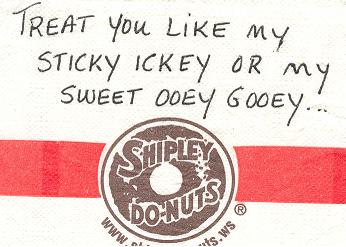 TREAT YOU LIKE MY
STICKY ICKEY OR MY
SWEET OOEY GOOEY...
SHIPLEY
DO-NUTS
®